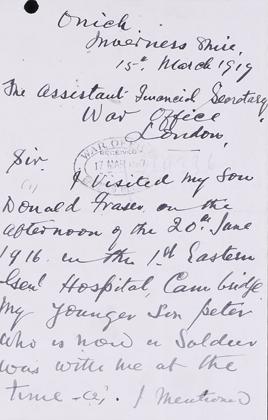 Onich
Inverness Shire,
15th March 1919
The Assistant Financial Secretary,
War Office
London,
WAR OFFICE
RECEIVED
17 MAR
Sir
(1) I Visited my Son
Donald Fraser on the
afternoon of the 20th June
1916 in the 1st Eastern
Genl Hospital, Cambridge
My Younger Son peter
who is now a Soldier
was with me at the
time - (2). I mentioned